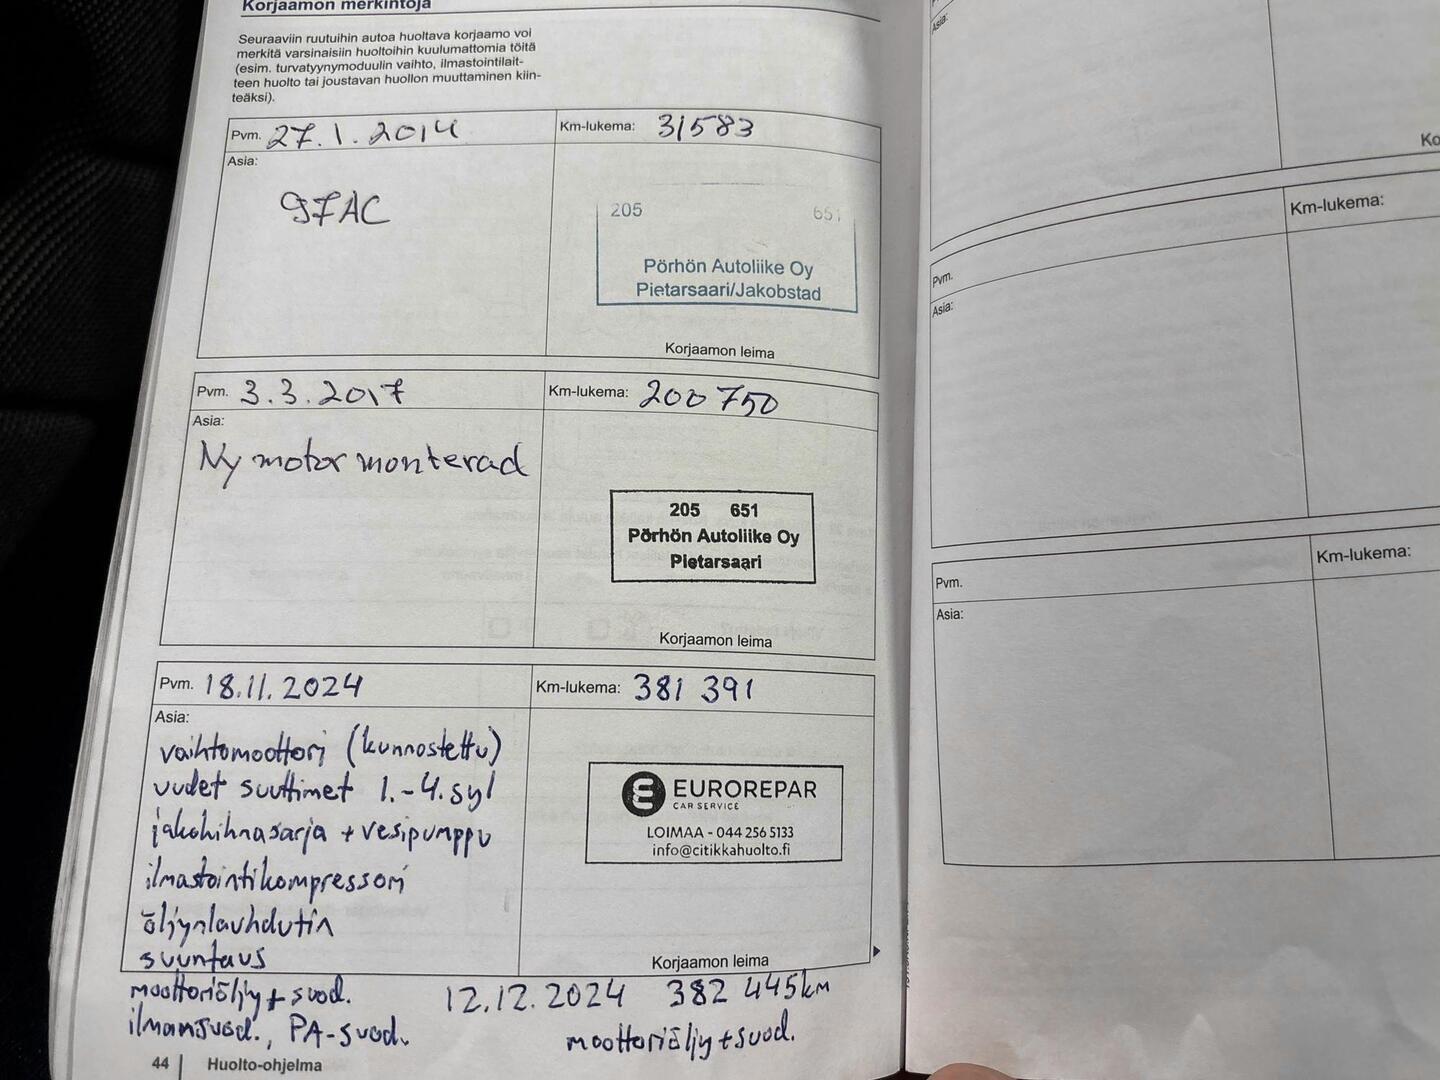 Korjaamon merkintöjä
Seuraaviin ruutuihin autoa huoltava korjaamo voi
merkitä varsinaisiin huoltoihin kuulumattomia töitä
(esim. turvatyynymoduulin vaihto, ilmastointilait-
teen huolto tai joustavan huollon muuttaminen kiin-
teäksi).
Pvm. 27.1.2014
Km-lukema: 31583
Asia:
97AC
205 651
Pörhön Autoliike Oy
Pietarsaari/Jakobstad
Korjaamon leima
Pvm. 3.3.2017
Km-lukema: 200 750
Asia:
Ny motor monterad
205 651
Pörhön Autoliike Oy
Pietarsaari
Korjaamon leima
Pvm. 18.11.2024
Km-lukema: 381 391
Asia:
vaihtomoottori (kunnostettu)
uudet suuttimet 1.-4. syl
jakohihnasarja + vesipumppu
ilmastointikompressori
öljynlauhdutin
suuntaus
moottoriöljy + suod.
ilmansuod., PA-suod.
EUROREPAR
CAR SERVICE
LOIMAA - 044 256 5133
info@citikkahuolto.fi
Korjaamon leima
12.12.2024 382 445km
moottoriöljy + suod.
44 Huolto-ohjelma
Asia:
Ko
Pvm.
Km-lukema:
Asia:
Pvm.
Km-lukema:
Asia: